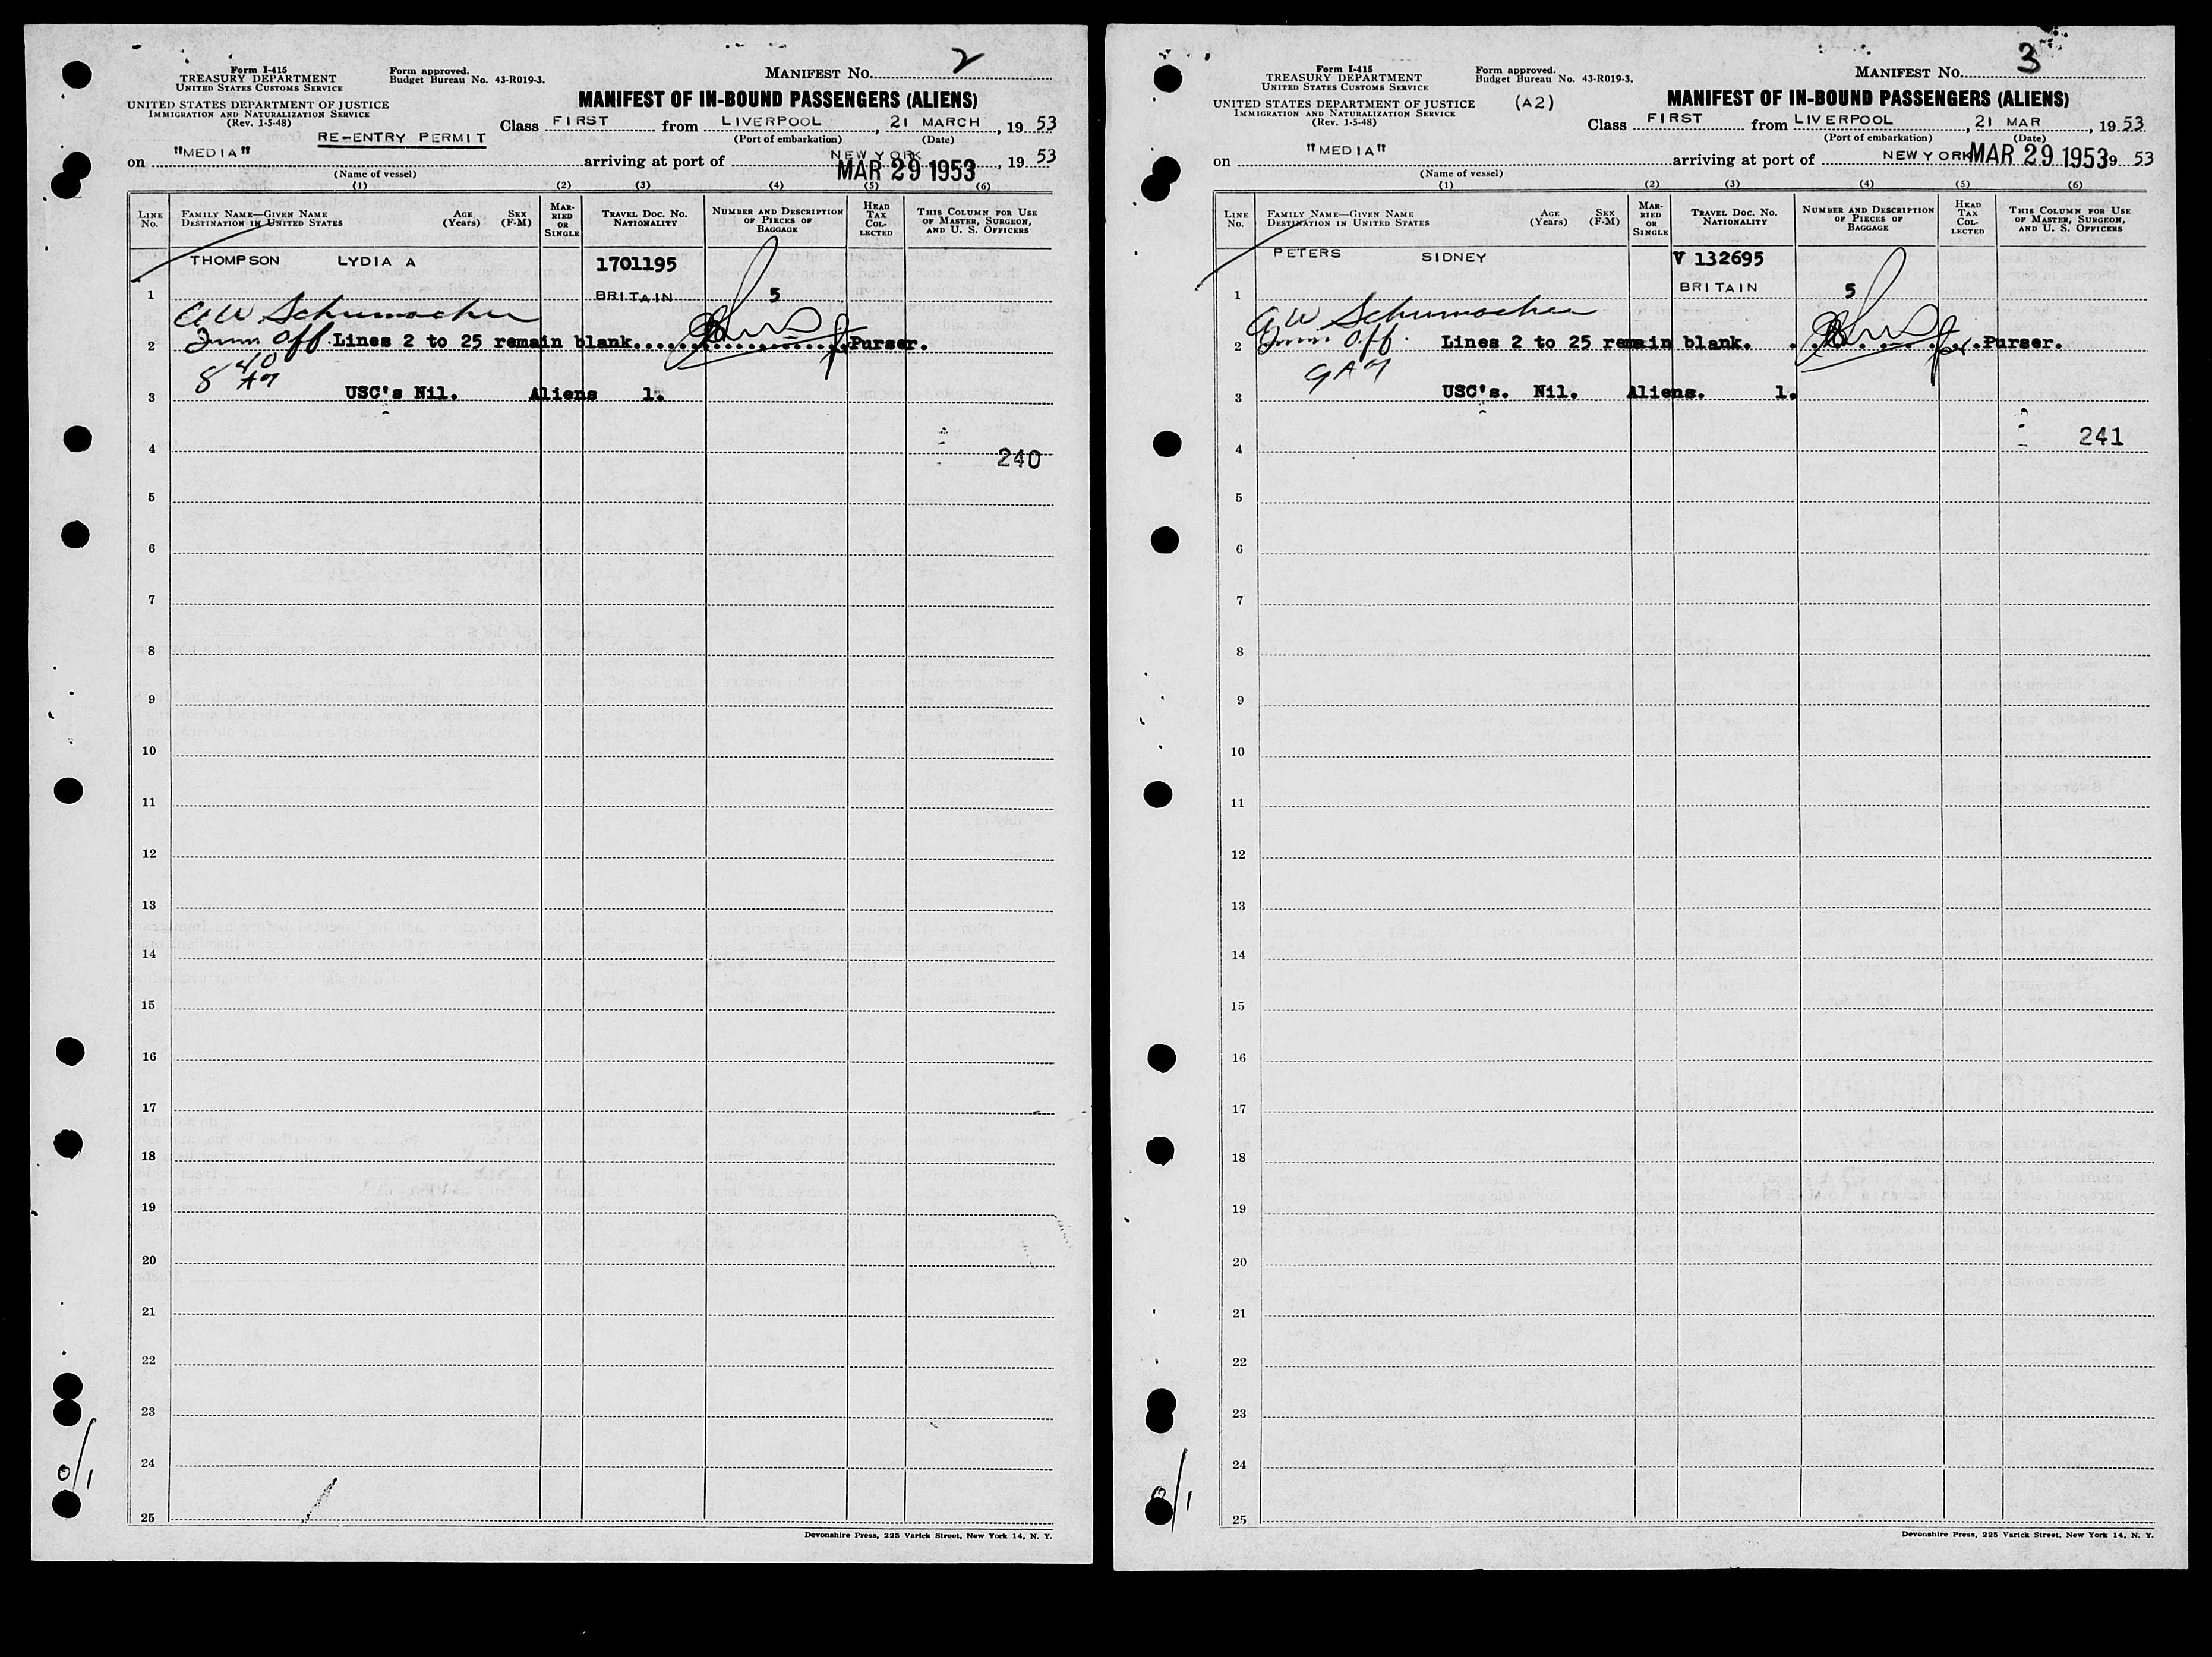 Form I-415
TREASURY DEPARTMENT
UNITED STATES CUSTOMS SERVICE
Form approved.
Budget Bureau No. 43-R019-3.
MANIFEST NO. 2
UNITED STATES DEPARTMENT OF JUSTICE
IMMIGRATION AND NATURALIZATION SERVICE
(Rev. 1-5-48)
RE-ENTRY PERMIT
MANIFEST OF IN-BOUND PASSENGERS (ALIENS)
Class FIRST from LIVERPOOL, 21 MARCH, 1953
(Port of embarkation) (Date)
on "MEDIA" arriving at port of NEW YORK MAR 29 1953, 1953
(Name of vessel)
(1) (2) (3) (4) (5) (6)
LINE No. FAMILY NAME—GIVEN NAME DESTINATION IN UNITED STATES AGE (Years) SEX (F-M) MARRIED OR SINGLE TRAVEL DOC. NO. NATIONALITY NUMBER AND DESCRIPTION OF PIECES OF BAGGAGE HEAD TAX COLLECTED THIS COLUMN FOR USE OF MASTER, SURGEON, AND U. S. OFFICERS
THOMPSON LYDIA A 1701195
1 BRITAIN 5
A W Schumacher
2 Imm Off. Lines 2 to 25 remain blank. Purser.
8 40 AM
3 USC's Nil. Aliens 1.
4 240
5
6
7
8
9
10
11
12
13
14
15
16
17
18
19
20
21
22
23
24
25
0/1
Devonshire Press, 225 Varick Street, New York 14, N. Y.
Form I-415
TREASURY DEPARTMENT
UNITED STATES CUSTOMS SERVICE
Form approved.
Budget Bureau No. 43-R019-3.
MANIFEST NO. 3
UNITED STATES DEPARTMENT OF JUSTICE
IMMIGRATION AND NATURALIZATION SERVICE
(Rev. 1-5-48)
(A2)
MANIFEST OF IN-BOUND PASSENGERS (ALIENS)
Class FIRST from LIVERPOOL, 21 MAR, 1953
(Port of embarkation) (Date)
on "MEDIA" arriving at port of NEW YORK MAR 29 1953 9 53
(Name of vessel)
(1) (2) (3) (4) (5) (6)
LINE No. FAMILY NAME—GIVEN NAME DESTINATION IN UNITED STATES AGE (Years) SEX (F-M) MARRIED OR SINGLE TRAVEL DOC. NO. NATIONALITY NUMBER AND DESCRIPTION OF PIECES OF BAGGAGE HEAD TAX COLLECTED THIS COLUMN FOR USE OF MASTER, SURGEON, AND U. S. OFFICERS
PETERS SIDNEY V 132695
1 BRITAIN 5
A W Schumacher
2 Imm Off. Lines 2 to 25 remain blank. Purser.
9 AM
3 USC's. Nil. Aliens. 1.
4 241
5
6
7
8
9
10
11
12
13
14
15
16
17
18
19
20
21
22
23
24
25
Devonshire Press, 225 Varick Street, New York 14, N. Y.